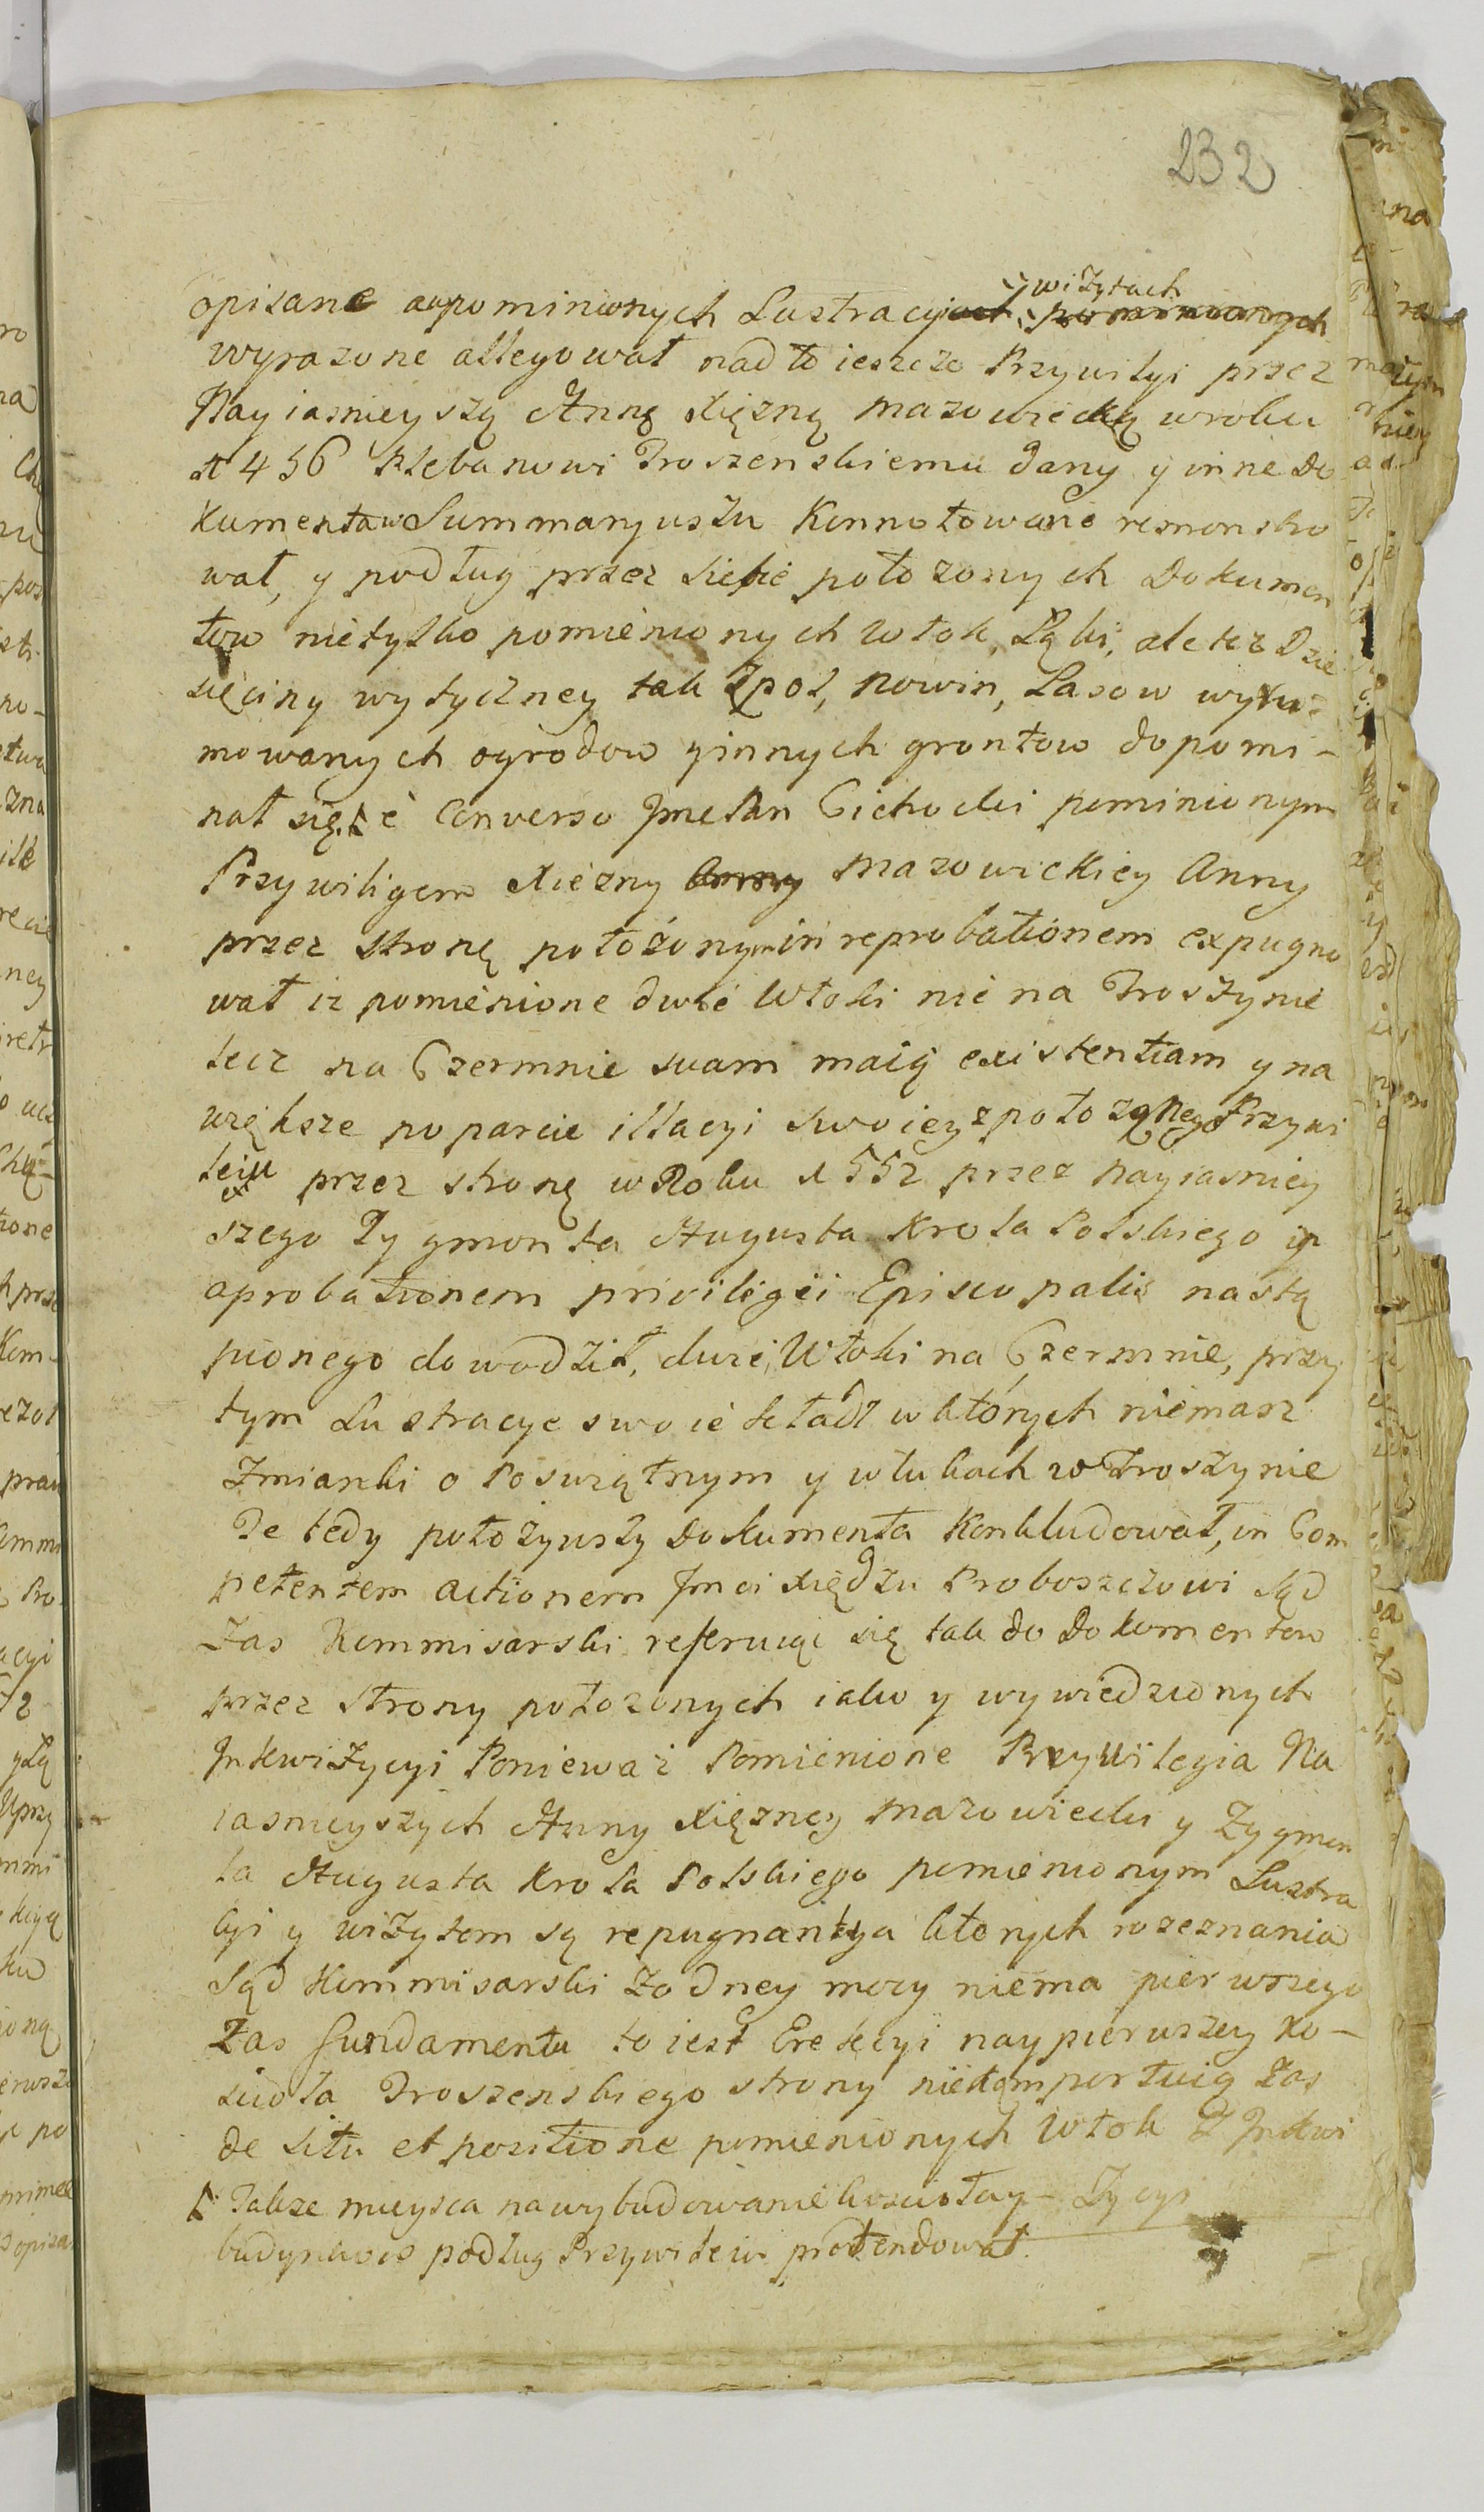 232
opisane a w pominionych Lustracyiach, wizytach pomienionych
wyrazone allegował nad to ieszcze Przywilyi przez
Nayiasnieyszą Annę Xięznę mazowiecką w roku
1456 Plebanowi Troszenskiemu dany y inne Do
kumenta w Summaryuszu Konnotowane remonstro
wał, y podług przez siebie połozonych Dokumen
tow nietylko pomienionych Włok, Łąki, ale tez Dzie
sięciny wytyczney tak z pol, nowin, Lasow wykar
mowanych ogrodow y innych grontow dopomi-
nał się. è Converso Jme Pan Cichocki pominionym
Przywiligem Xiezny Anny mazowickiey Anny
przez stronę połozonym in reprobationem expugno
wał iz pomienione dwie Włoki nie na Troszynie
lecz na Czermnie suam maią existentiam y na
większe poparcie illacyi swoiey z połozonego Przywi
leiu przez stronę w Roku 1552 przez nayiasniey
szego Zygmonta Augusta Krola Polskiego in
aprobationem priviligii Episcopalis nastą
pionego dowodził, dwie Włoki na Czermnie, przy
tym Lustracye swoie kładł w ktorych niemasz
Zmianki o Poswiątnym y włukach w Troszynie
Te tedy połozywszy Dokumenta konkludował, in Com
petentem actionem Jmci Xiędzu Proboszczowi Sąd
Zas Kommisarski referuiąc się tak do Dokumentow
przez strony połozonych iako y wywiedzionych
Inkwizycyi Poniewaz Pomienione Przywilegia Na
iasnieyszych Anny Xięzney mazowiecki y Zygmon
ta Augusta Krola Polskiego pomienionym Lustra
cyi y wizytom są repugnantya ktorych rozeznania
Sąd Kommisarski Zodney mocy niema pierwszego
Zas fundamentu to iest Erekcyi naypierwszey Ko-
sciola Troszenskiego strony niekomportuią Zas
de situ et positione pomienionych Włok Z Inkwi
Zycyi
Takze mieysca na wybudowanie koscioła y
budynkow podług Przywileiu protendował.